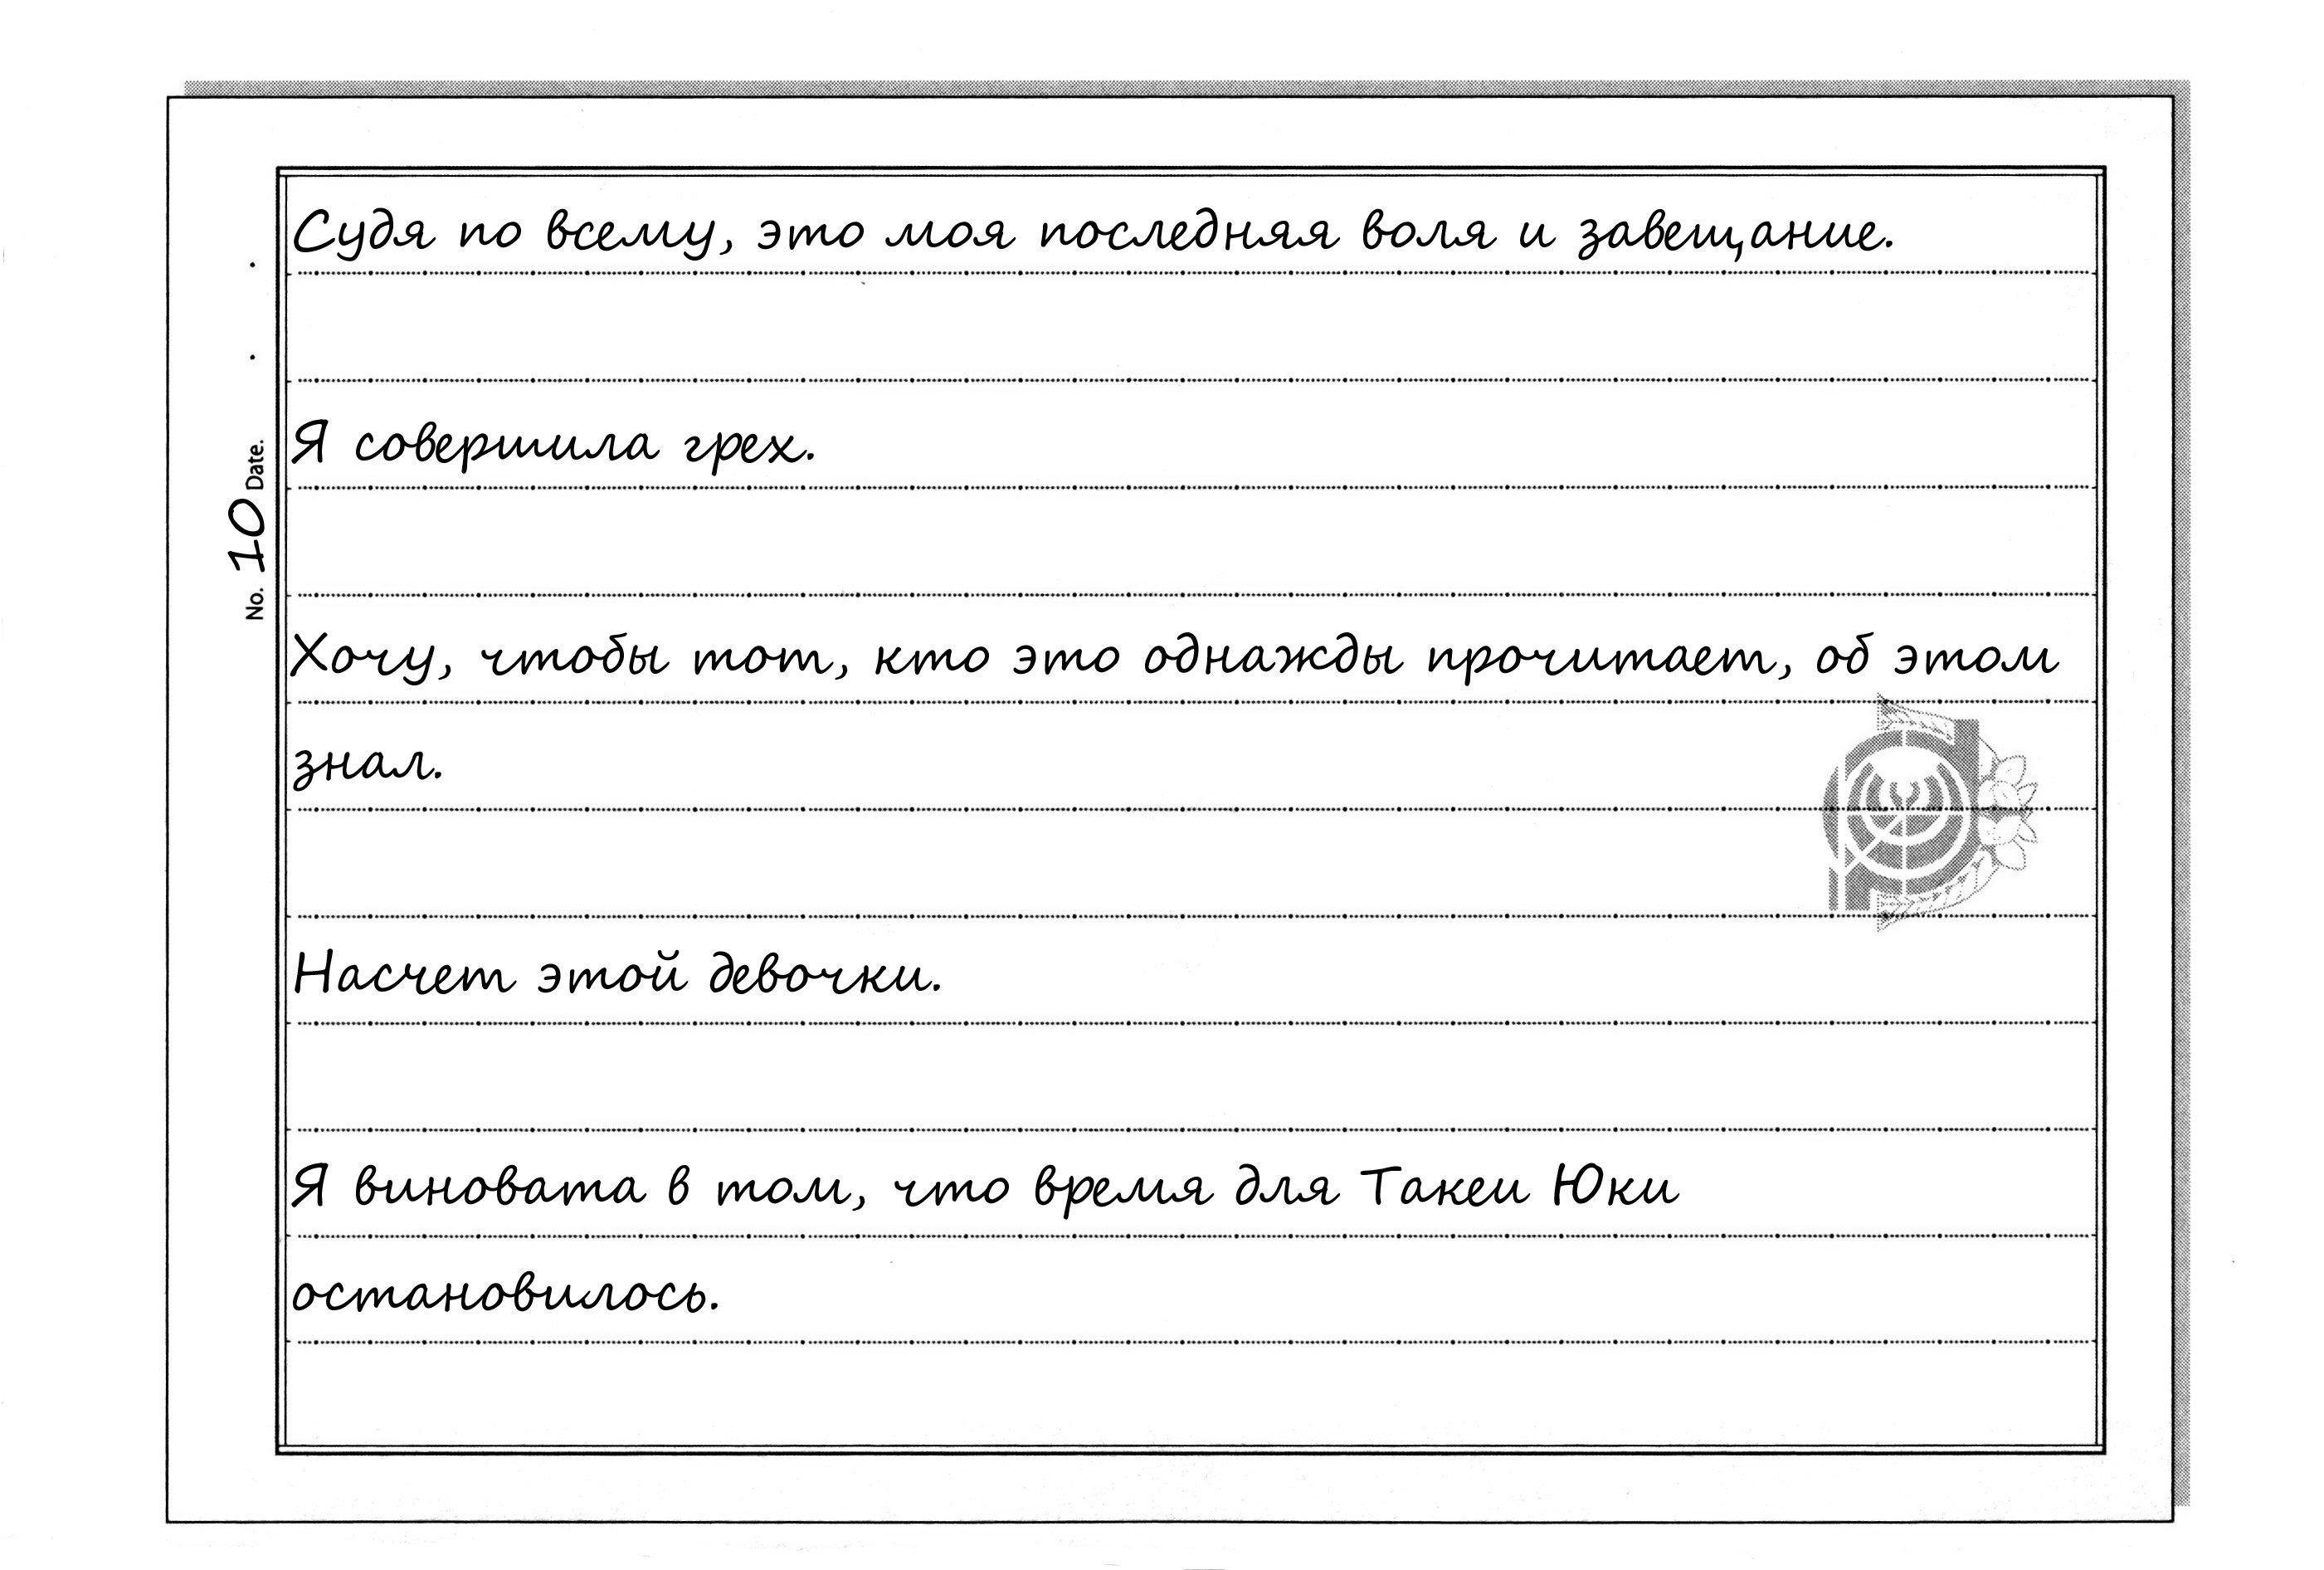 Судя по всему, это моя последняя воля и завещание.
Я совершила грех.
Хочу, чтобы тот, кто это однажды прочитает, об этом
знал.
Насчет этой девочки.
Я виновата в том, что время для Такеи Юки
остановилось.
No. 10 Date. . .